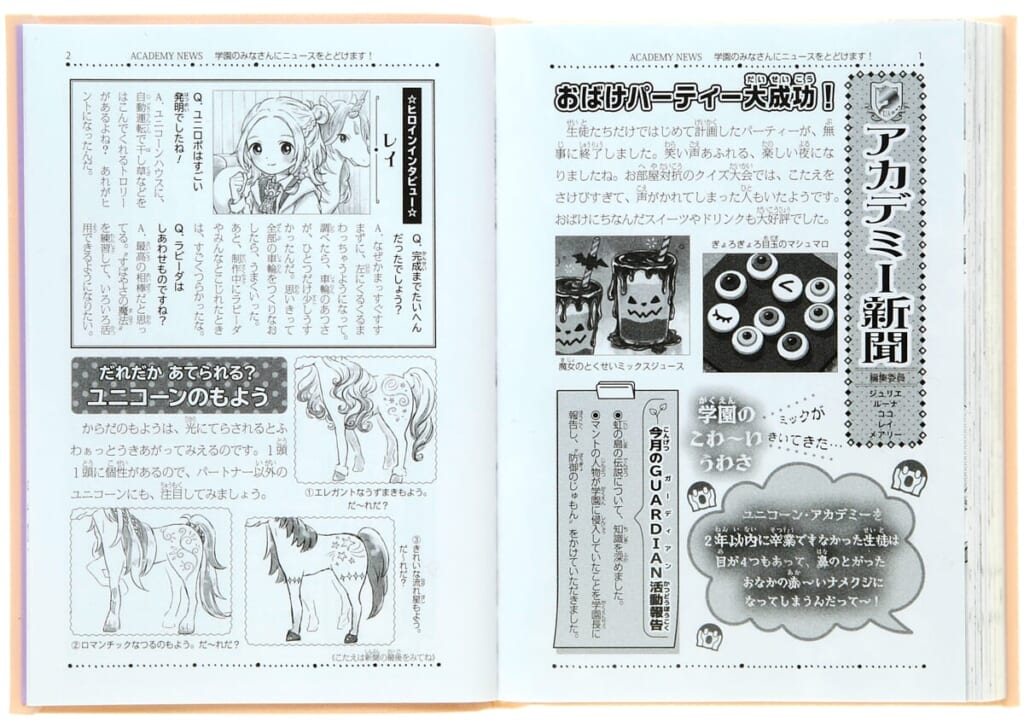 ACADEMY NEWS 学園のみなさんにニュースをとどけます!
1
アカデミー新聞
編集委員
ジュリエ
ルーナ
ココ
レイ
メアリー
おばけパーティー大成功!
生徒たちだけではじめて計画したパーティーが、無
事に終了しました。笑い声あふれる、楽しい夜にな
りましたね。お部屋対抗のクイズ大会では、こたえを
さけびすぎて、声がかれてしまった人もいたようです。
おばけにちなんだスイーツやドリンクも大好評でした。
ぎょろぎょろ目玉のマシュマロ
魔女のとくせいミックスジュース
ミックが
きいてきた…
学園の
こわ〜い
うわさ
ユニコーン・アカデミーを
2年以内に卒業できなかった生徒は
目が4つもあって、鼻のとがった
おなかの赤〜いナメクジに
なってしまうんだって〜!
今月のGUARDIAN活動報告
●虹の島の伝説について、知識を深めました。
●マントの人物が学園に侵入していたことを学園長に
報告し、"防御のじゅもん"をかけていただきました。
2
ACADEMY NEWS 学園のみなさんにニュースをとどけます!
☆ヒロインインタビュー☆
レイ
Q. ユニロボはすごい
発明でしたね!
A. ユニコーンハウスに、
自動運転で干し草などを
はこんでくれるトロリー
があるよね? あれがヒ
ントになったんだ。
Q. 完成までたいへん
だったでしょう?
A. なぜかまっすぐすす
まずに、左にくるくるま
わっちゃうようになって。
調べたら、車輪のあつさ
が、ひとつだけ少しうす
かったんだ。思いきって
全部の車輪をつくりなお
したら、うまくいった。
あと、制作中にラピーダ
やみんなとこじれたとき
は、すごくつらかったな。
Q. ラピーダは
しあわせものですね?
A. 最高の相棒だと思っ
てる。"すばやさの魔法"
を練習して、いろいろ活
用できるようになりたい。
だれだか あてられる?
ユニコーンのもよう
からだのもようは、光にてらされるとふ
わぁっとうきあがってみえるのです。1頭
1頭に個性があるので、パートナー以外の
ユニコーンにも、注目してみましょう。
①エレガントなうずまきもよう。
だ〜れだ?
②ロマンチックなつるのもよう。だ〜れだ?
③きれいな流れ星もよう。
だ〜れだ?
《こたえは新聞の最後をみてね》